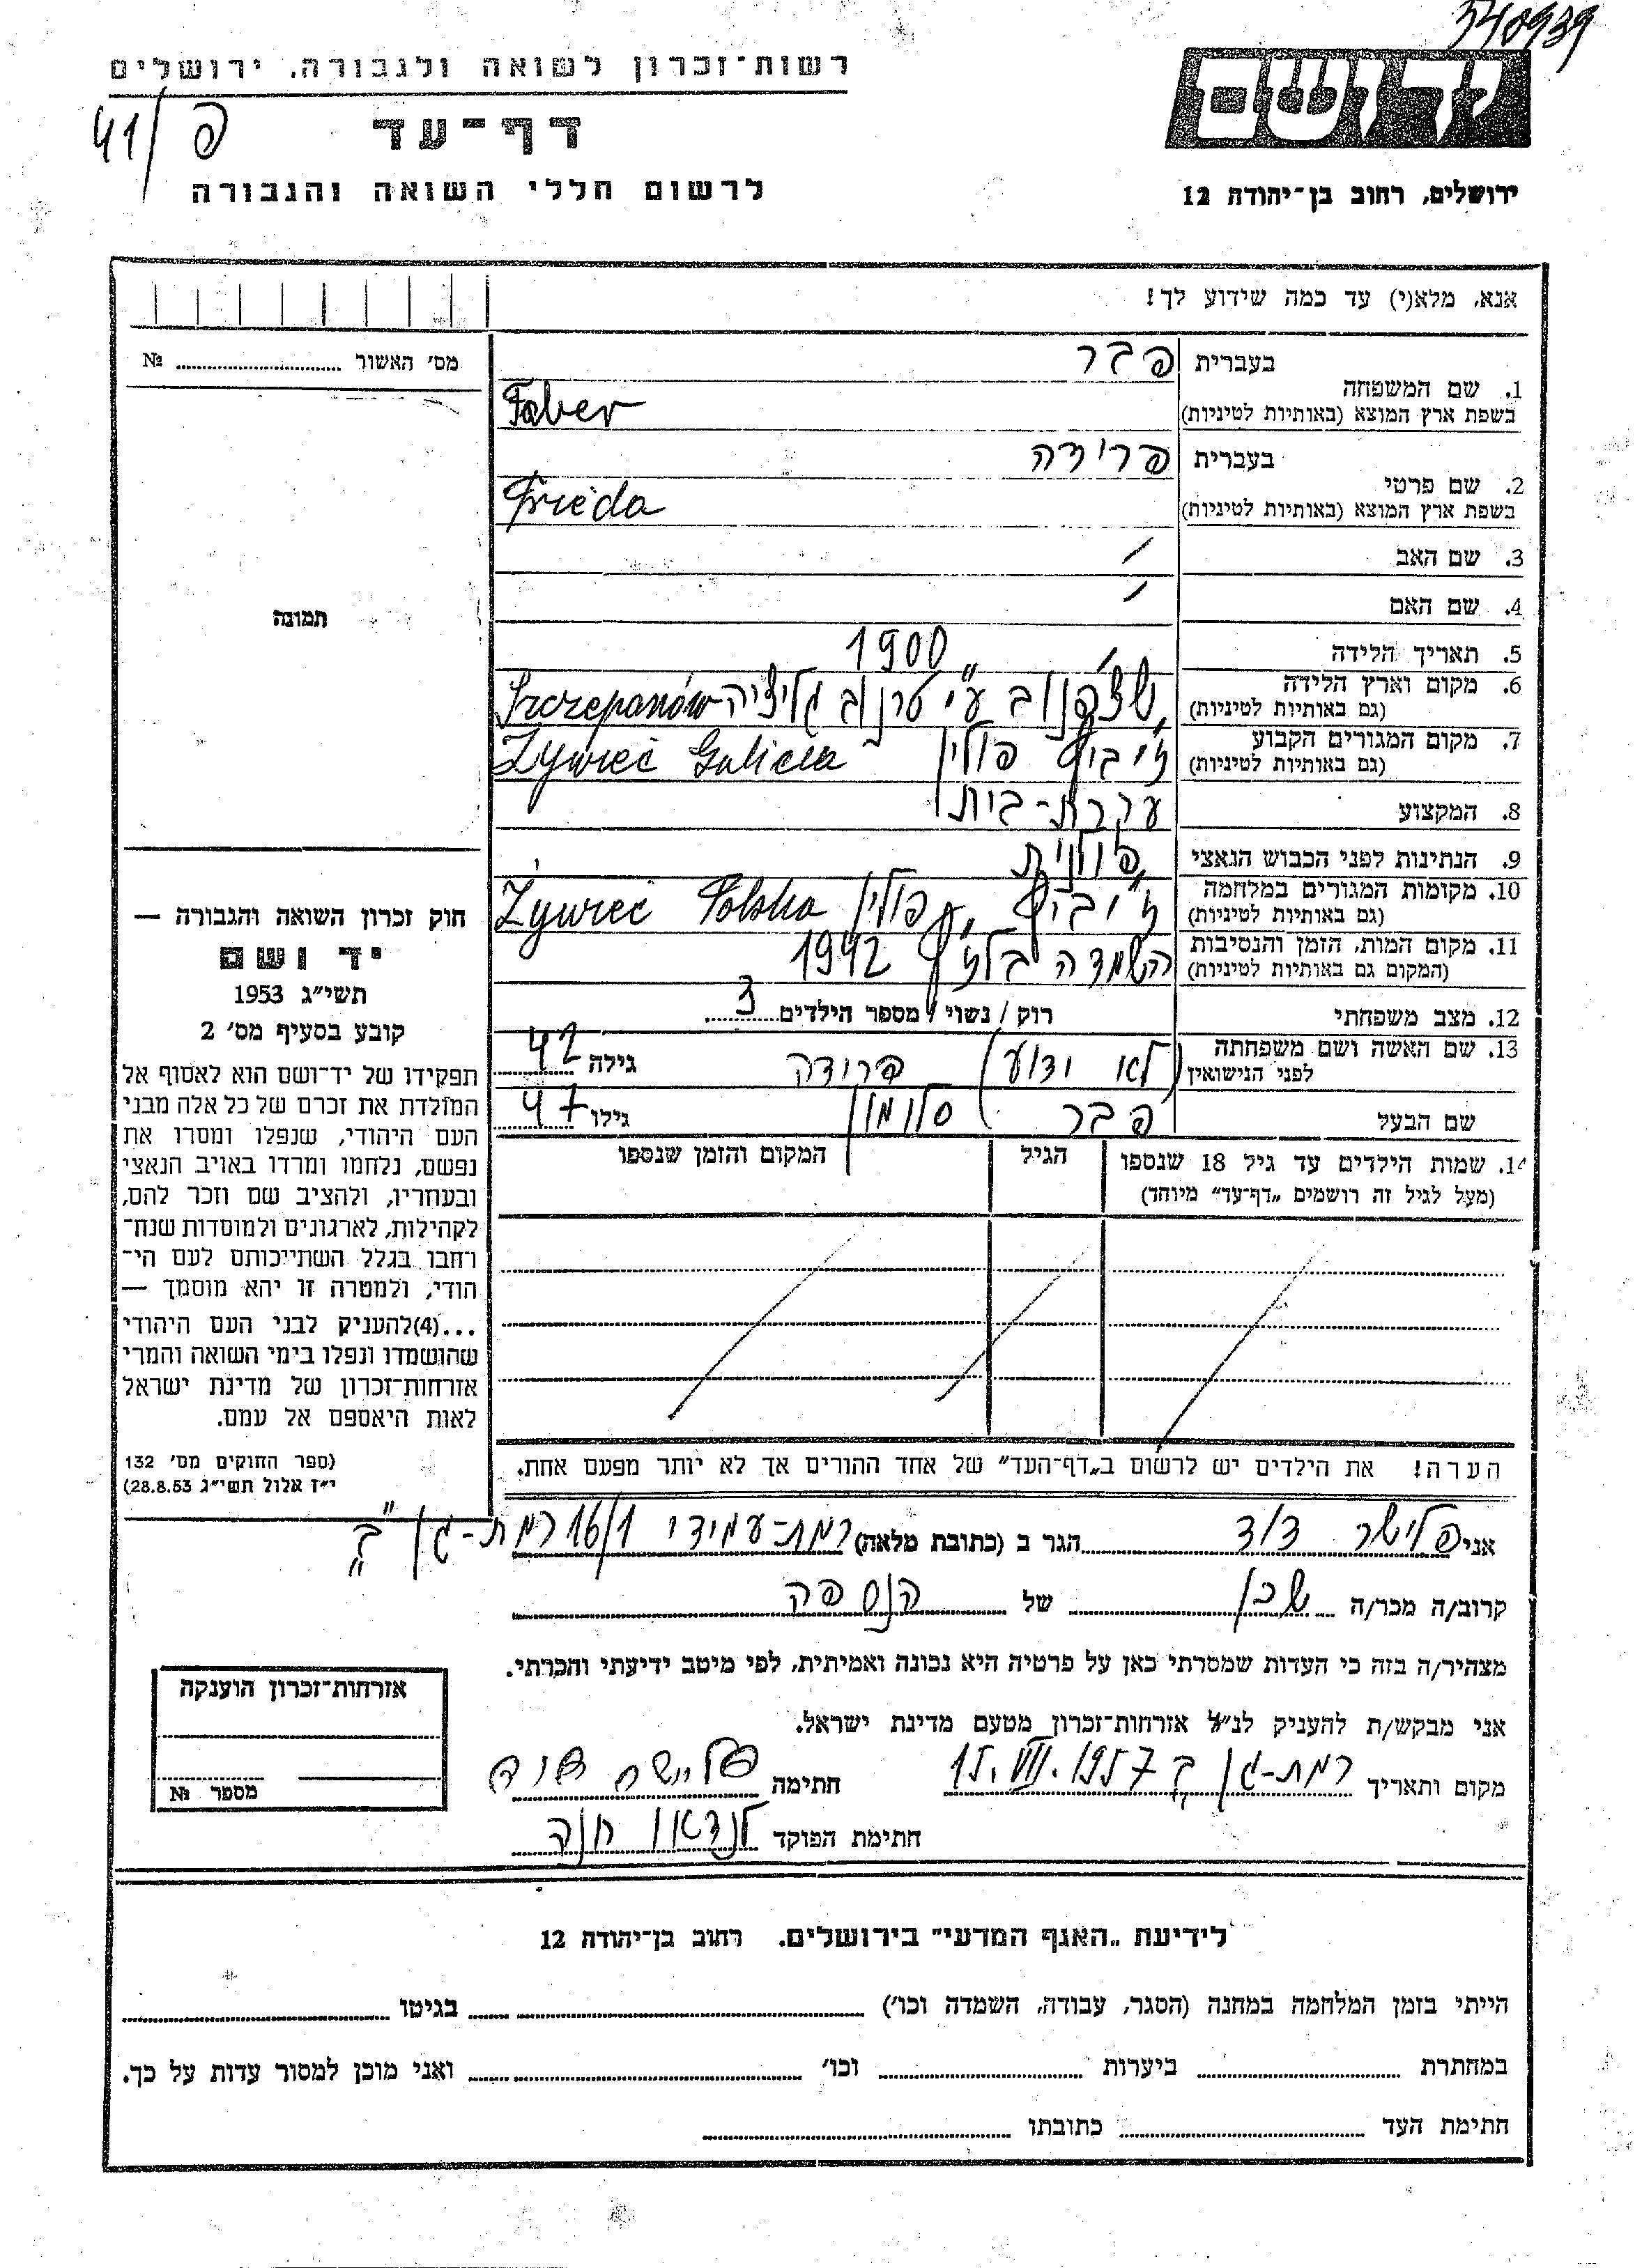 540939
רשות־זכרון לשואה ולגבורה, ירושלים
יד ושם
41/פ
דף־עד
לרשום חללי השואה והגבורה
ירושלים, רחוב בן־יהודה 12
אנא, מלא(י) עד כמה שידוע לך!
מס׳ האשור № ........
תמונה
1. שם המשפחה בעברית פבר
בשפת ארץ המוצא (באותיות לטיניות) Faber
2. שם פרטי בעברית פרידה
בשפת ארץ המוצא (באותיות לטיניות) Frieda
3. שם האב /
4. שם האם /
5. תאריך הלידה 1900
6. מקום וארץ הלידה (גם באותיות לטיניות) שצ׳פנוב ע״י טרנוב גליציה Szczepanów
7. מקום המגורים הקבוע (גם באותיות לטיניות) ז׳יביץ פולין Żywieć Galicia
8. המקצוע עקרת-בית
9. הנתינות לפני הכבוש הנאצי פולנית
10. מקומות המגורים במלחמה (גם באותיות לטיניות) ז׳יביץ, פולין Żywieć Polska
11. מקום המות, הזמן והנסיבות (המקום גם באותיות לטיניות) השמדה בלז׳ץ 1942
12. מצב משפחתי רוק / נשוי / מספר הילדים 3
13. שם האשה ושם משפחתה לפני הנישואין (לא ידוע) פרידה גילה 42
שם הבעל פבר סלומון גילו 47
14. שמות הילדים עד גיל 18 שנספו הגיל המקום והזמן שנספו
(מעל לגיל זה רושמים „דף־עד״ מיוחד)
הערה! את הילדים יש לרשום ב„דף־העד״ של אחד ההורים אך לא יותר מפעם אחת.
חוק זכרון השואה והגבורה —
יד ושם
תשי״ג 1953
קובע בסעיף מס׳ 2
תפקידו של יד־ושם הוא לאסוף אל
המולדת את זכרם של כל אלה מבני
העם היהודי, שנפלו ומסרו את
נפשם, נלחמו ומרדו באויב הנאצי
ובעוזריו, ולהציב שם וזכר להם,
לקהילות, לארגונים ולמוסדות שנח־
רחבו בגלל השתייכותם לעם הי־
הודי, ולמטרה זו יהא מוסמך —
...(4)להעניק לבני העם היהודי
שהושמדו ונפלו בימי השואה והמרי
אזרחות־זכרון של מדינת ישראל
לאות היאספם אל עמם.
(ספר החוקים מס׳ 132
י״ז אלול תשי״ג 28.8.53)
אני פלישר דוד הגר ב (כתובת מלאה) רמת-עמידר 16/1 רמת-גן
קרוב/ה מכר/ה שכן של הנספה
מצהיר/ה בזה כי העדות שמסרתי כאן על פרטיה היא נכונה ואמיתית, לפי מיטב ידיעתי והכרתי.
אני מבקש/ת להעניק לנ״ל אזרחות־זכרון מטעם מדינת ישראל.
מקום ותאריך רמת-גן 15.VII.1957 חתימה פליישר דוד
חתימת הפוקד לנדאו חנה
אזרחות־זכרון הוענקה
מספר №
לידיעת „האגף המדעי״ בירושלים. רחוב בן־יהודה 12
הייתי בזמן המלחמה במחנה (הסגר, עבודה, השמדה וכו׳) ........ בגיטו ........
במחתרת ........ ביערות ........ וכו׳ ........ ואני מוכן למסור עדות על כך.
חתימת העד ........ כתובתו ........